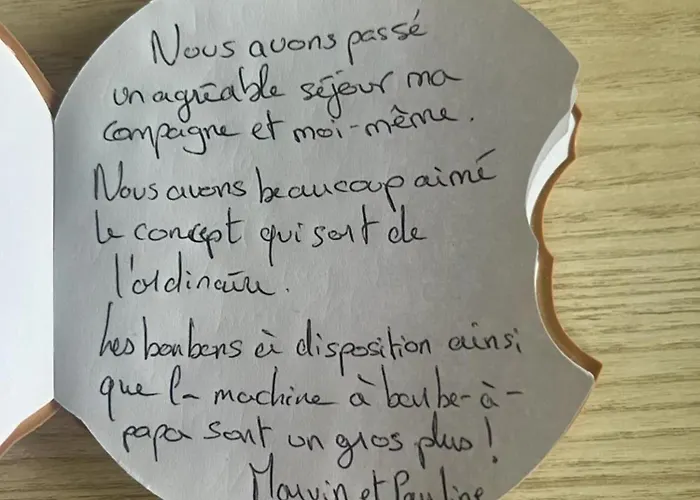 Nous avons passé
un agréable séjour ma
compagne et moi-même.
Nous avons beaucoup aimé
le concept qui sort de
l'ordinaire.
Les bonbons à disposition ainsi
que la machine à barbe-à-
papa sont un gros plus !
Marvin et Pauline